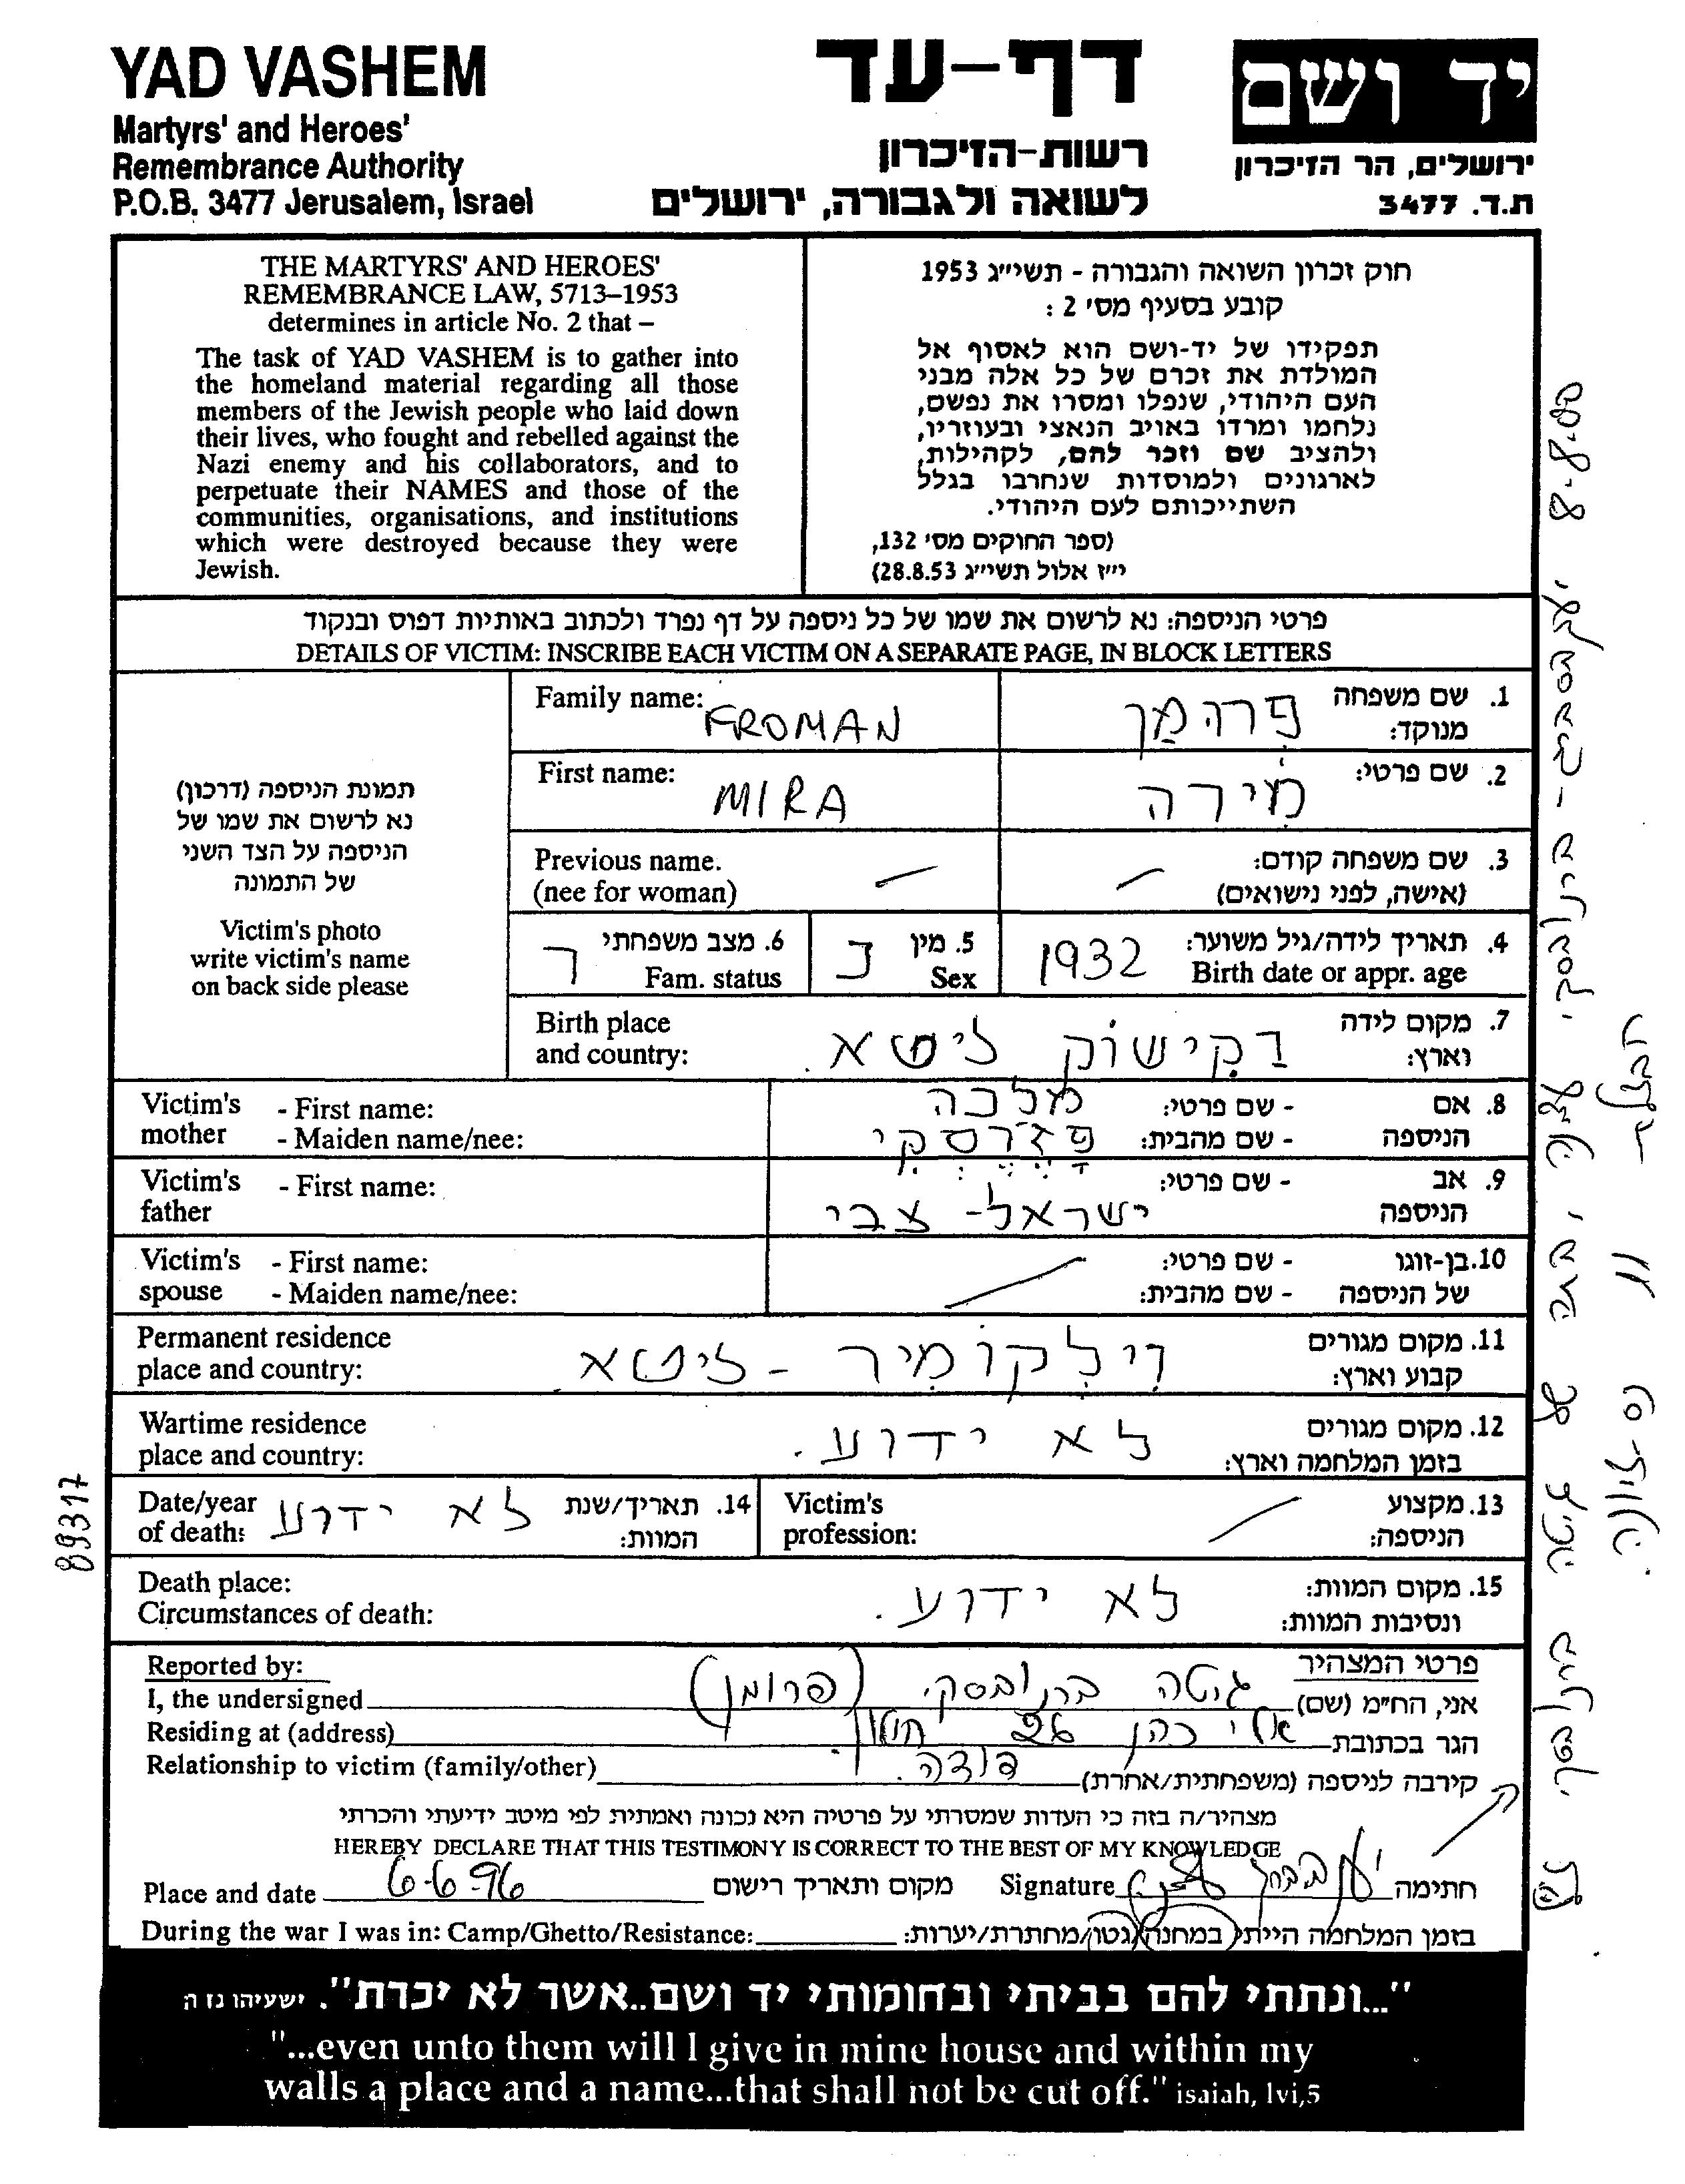 YAD VASHEM
Martyrs' and Heroes'
Remembrance Authority
P.O.B. 3477 Jerusalem, Israel
דף-עד
רשות-הזיכרון
לשואה ולגבורה, ירושלים
יד ושם
ירושלים, הר הזיכרון
ת.ד. 3477
THE MARTYRS' AND HEROES'
REMEMBRANCE LAW, 5713–1953
determines in article No. 2 that –
The task of YAD VASHEM is to gather into
the homeland material regarding all those
members of the Jewish people who laid down
their lives, who fought and rebelled against the
Nazi enemy and his collaborators, and to
perpetuate their NAMES and those of the
communities, organisations, and institutions
which were destroyed because they were
Jewish.
חוק זכרון השואה והגבורה - תשי״ג 1953
קובע בסעיף מס׳ 2 :
תפקידו של יד-ושם הוא לאסוף אל
המולדת את זכרם של כל אלה מבני
העם היהודי, שנפלו ומסרו את נפשם,
נלחמו ומרדו באויב הנאצי ובעוזריו,
ולהציב שם וזכר להם, לקהילות,
לארגונים ולמוסדות שנחרבו בגלל
השתייכותם לעם היהודי.
(ספר החוקים מס׳ 132,
י״ז אלול תשי״ג 28.8.53)
פרטי הניספה: נא לרשום את שמו של כל ניספה על דף נפרד ולכתוב באותיות דפוס ובנקוד
DETAILS OF VICTIM: INSCRIBE EACH VICTIM ON A SEPARATE PAGE, IN BLOCK LETTERS
תמונת הניספה (דרכון)
נא לרשום את שמו של
הניספה על הצד השני
של התמונה
Victim's photo
write victim's name
on back side please
Family name: FROMAN
1. שם משפחה
מנוקד:
First name: MIRA
2. שם פרטי: מירה
Previous name.
(nee for woman)
3. שם משפחה קודם:
(אישה, לפני נישואים)
4. תאריך לידה/גיל משוער:
Birth date or appr. age 1932
5. מין
Sex נ
6. מצב משפחתי
Fam. status ר
Birth place
and country:
7. מקום לידה
וארץ: ליטא.
Victim's mother - First name:
- Maiden name/nee:
8. אם הניספה - שם פרטי: מלכה
- שם מהבית:
Victim's father - First name:
9. אב הניספה - שם פרטי: ישראל-צבי
Victim's spouse - First name:
- Maiden name/nee:
10. בן-זוגו של הניספה - שם פרטי:
- שם מהבית:
Permanent residence
place and country:
11. מקום מגורים
קבוע וארץ: וילקומיר - ליטא.
Wartime residence
place and country:
12. מקום מגורים
בזמן המלחמה וארץ: לא ידוע.
Date/year
of death:
14. תאריך/שנת
המוות: לא ידוע
Victim's
profession:
13. מקצוע
הניספה:
Death place:
Circumstances of death:
15. מקום המוות:
ונסיבות המוות: לא ידוע.
Reported by:
פרטי המצהיר
I, the undersigned
אני, הח״מ (שם) גיטה ברנובסקי (פרומן)
Residing at (address)
הגר בכתובת אלי כהן חולון
Relationship to victim (family/other)
קירבה לניספה (משפחתית/אחרת) דודה.
מצהיר/ה בזה כי העדות שמסרתי על פרטיה היא נכונה ואמתית לפי מיטב ידיעתי והכרתי
HEREBY DECLARE THAT THIS TESTIMONY IS CORRECT TO THE BEST OF MY KNOWLEDGE
Place and date 6-6-96 מקום ותאריך רישום
Signature חתימה
During the war I was in: Camp/Ghetto/Resistance:
בזמן המלחמה הייתי במחנה/גטו/מחתרת/יערות:
"...ונתתי להם בביתי ובחומותי יד ושם..אשר לא יכרת". ישעיהו נז ה
"...even unto them will I give in mine house and within my
walls a place and a name...that shall not be cut off." isaiah, lvi,5
89317